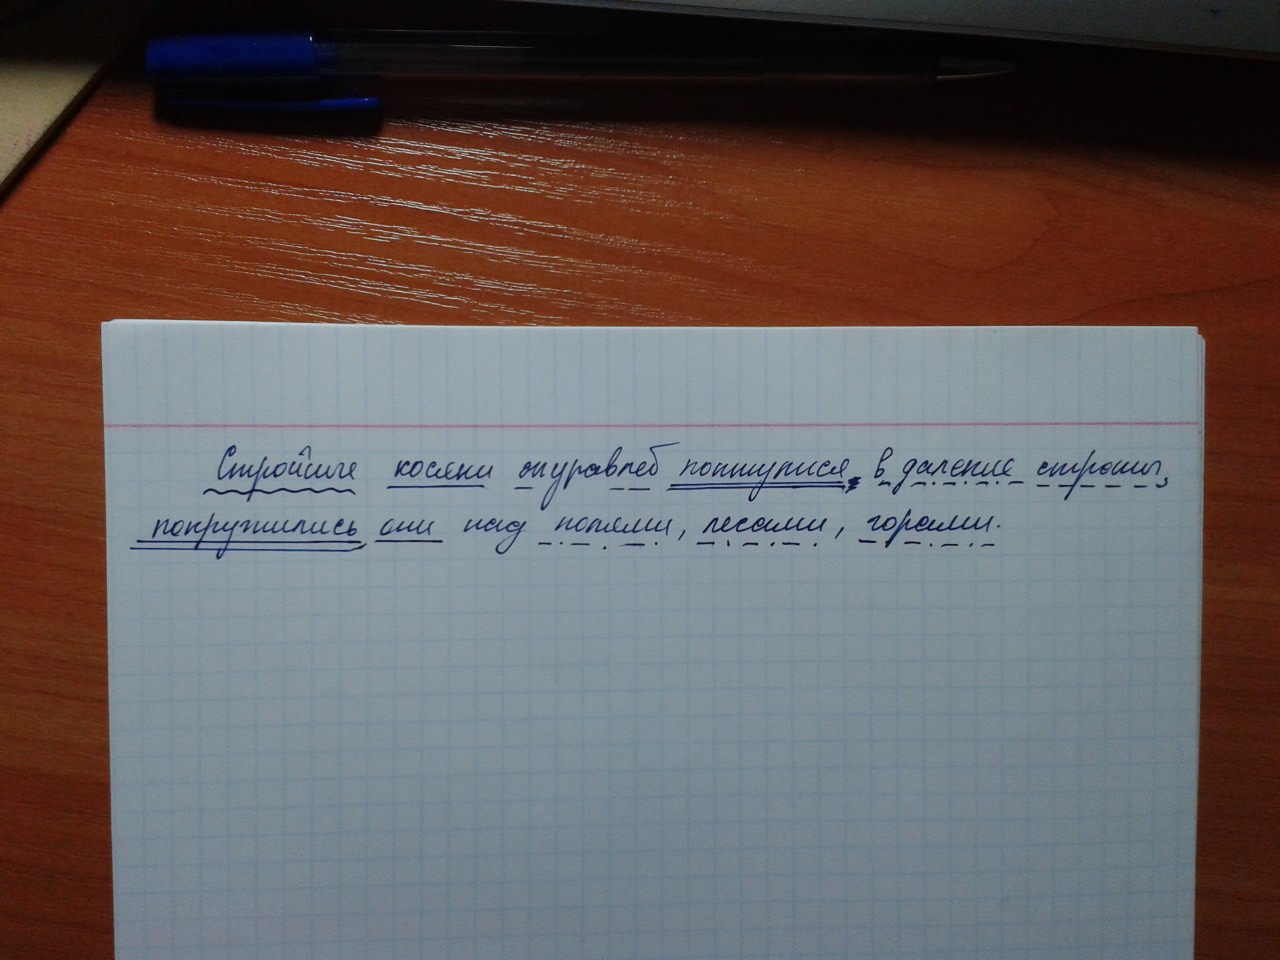 Стройные косяки журавлей потянулися в далекие страны,
покружились они над полями, лесами, горами.